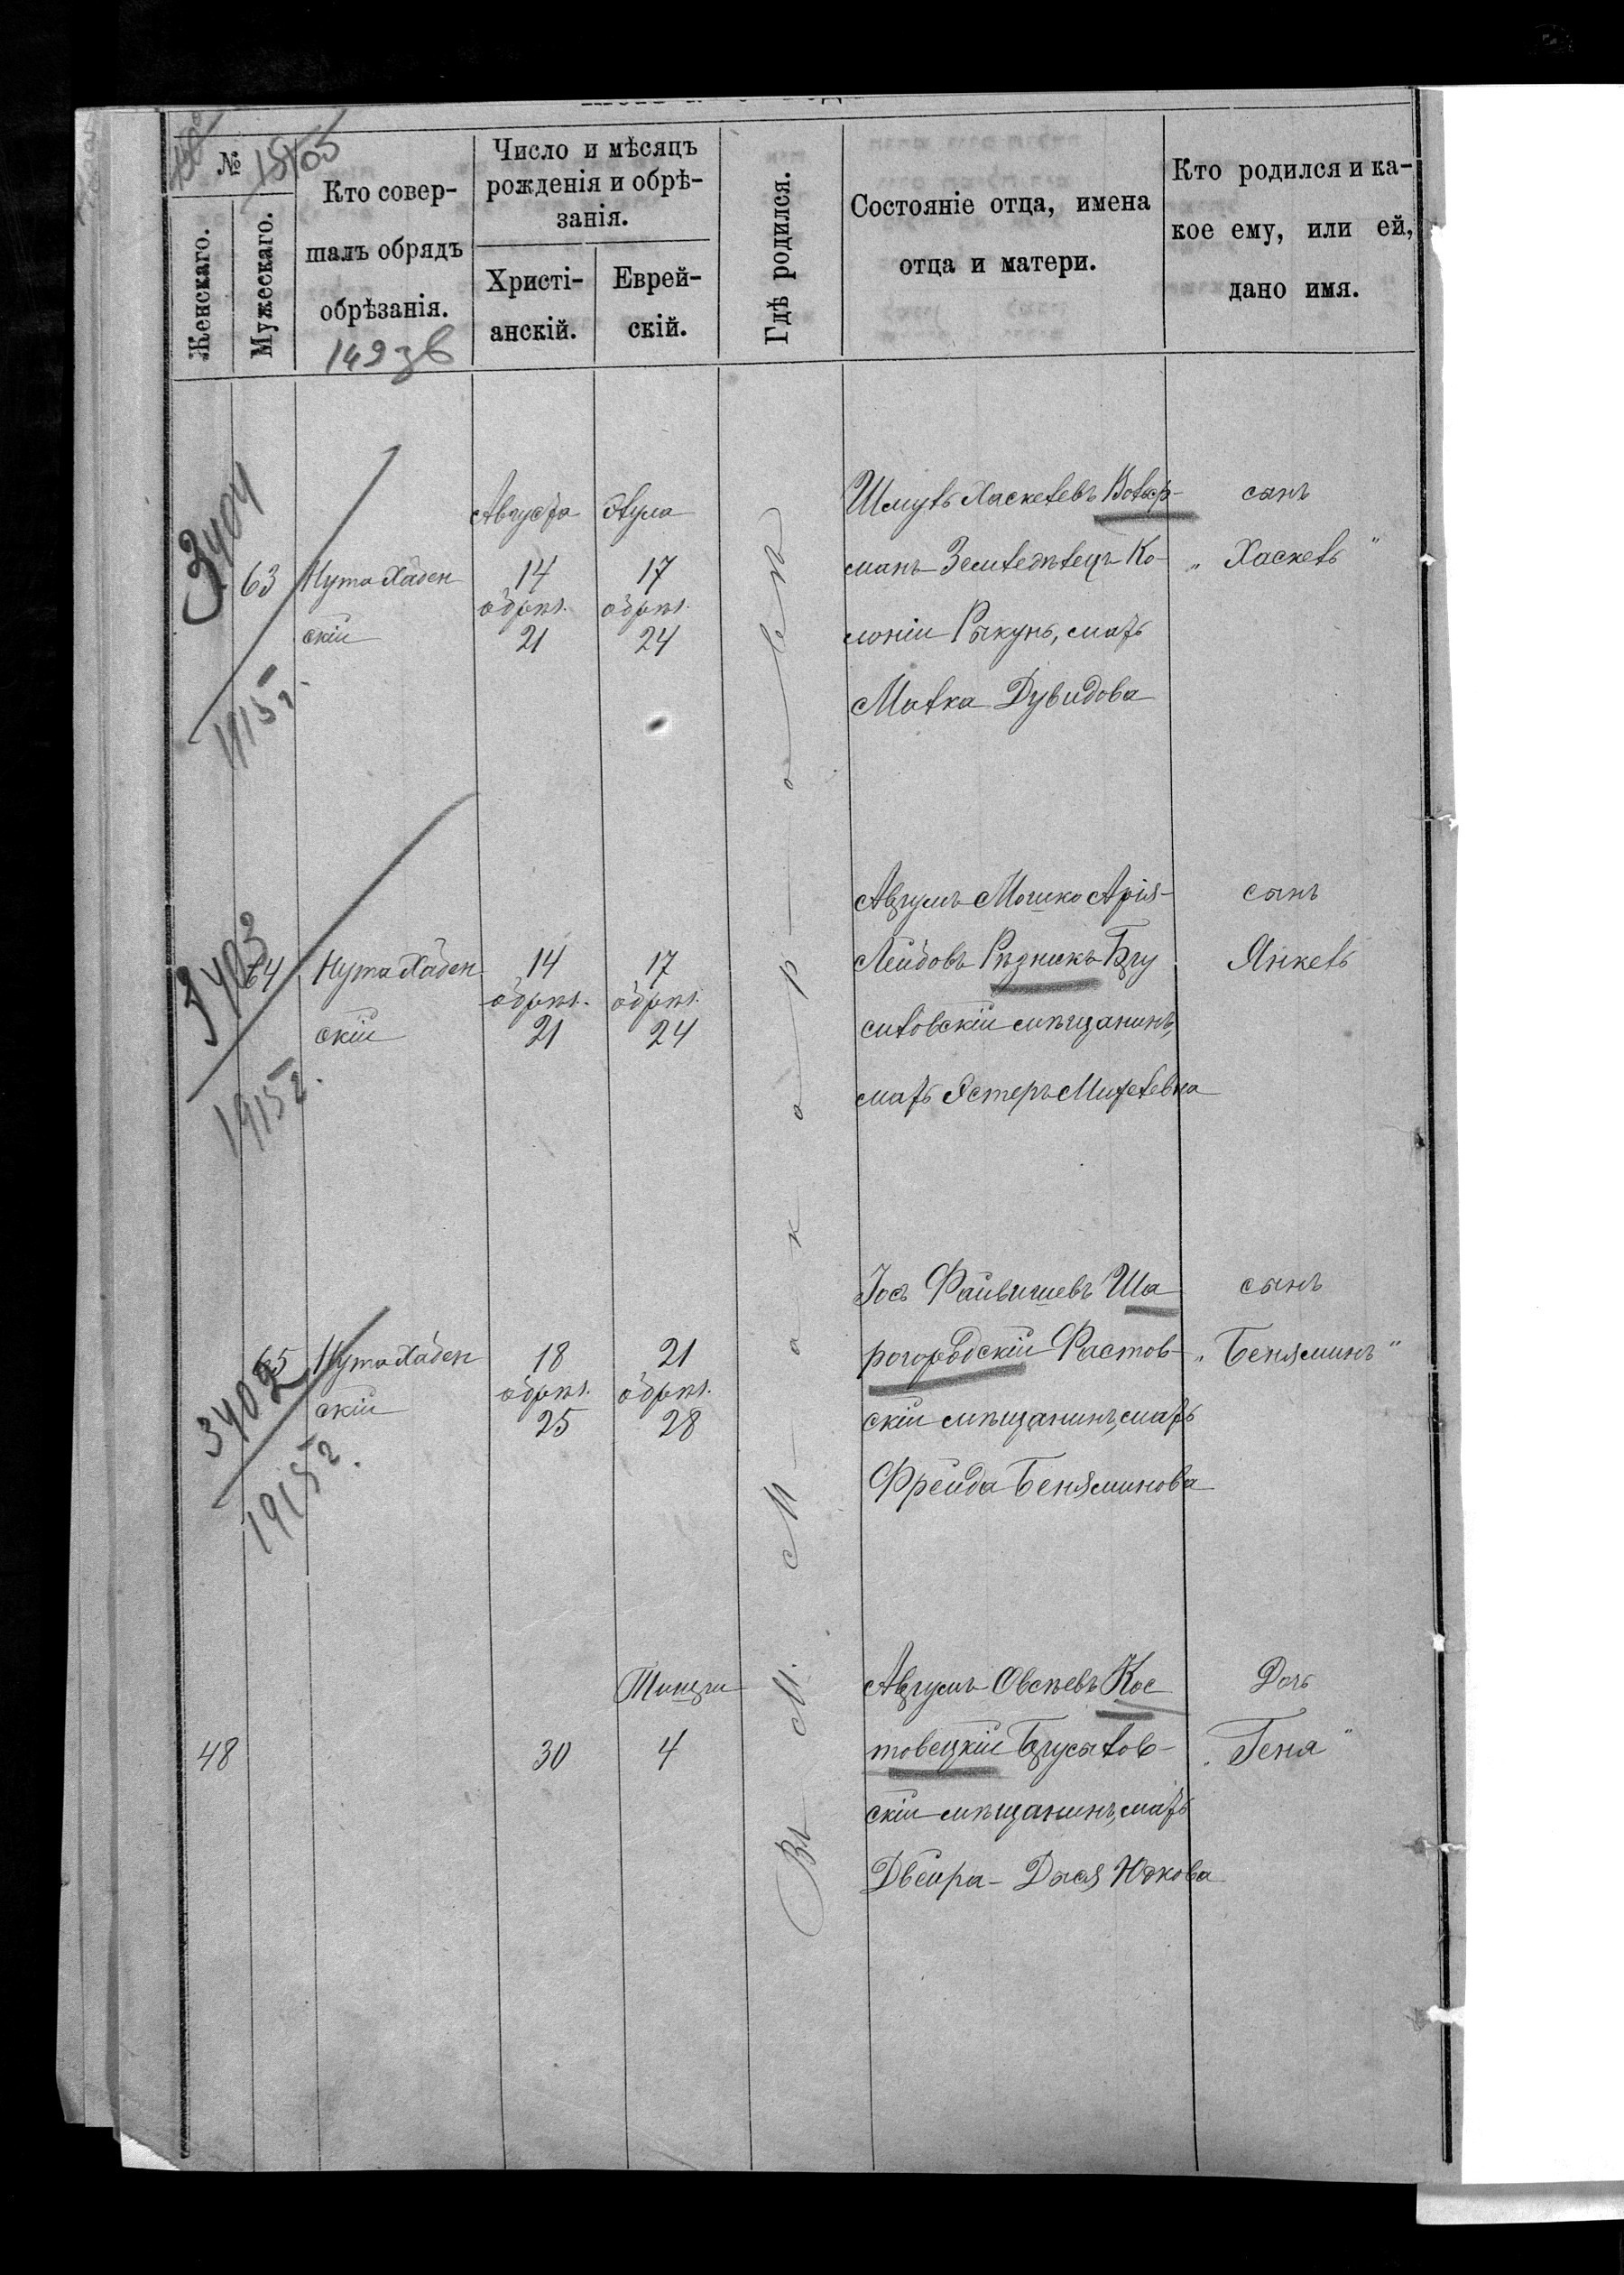 № 1505
Женскаго.
Мужескаго.
Кто совер-
шалъ обрядъ
обрѣзанія.
149 зв
Число и мѣсяцъ
рожденія и обрѣ-
занія.
Христі-
анскій.
Еврей-
скій.
Гдѣ родился.
Состояніе отца, имена
отца и матери.
Кто родился и ка-
кое ему, или ей,
дано имя.
Въ М. Макаровѣ
3404
1915 г.
63
Нута Хаден
скій
Августа
14
обрѣз.
21
Элула
17
обрѣз.
24
Шмуль Хаскелевъ Вольф-
манъ Земледѣлецъ Ко-
лоніи Рыкунь, мать
Малка Дувидова
сынъ
„Хаскель"
3403
1915 г.
64
Нута Хаден
скій
14
обрѣз.
21
17
обрѣз.
24
Аврумъ Мошко Арія-
Лейбовъ Рѣзникъ Бру
силовскій мѣщанинъ,
мать Эстеръ
сынъ
Янкель
3402
1915 г.
65
Нута Хаден
скій
18
обрѣз.
25
21
обрѣз.
28
Іось Файвишевъ Ша
рогородскій Фастов-
скій мѣщанинъ, мать
Фрейда Беняминова
сынъ
„Беняминъ"
48
30
Тишри
4
Аврумъ Овсѣевъ Кос
товецкій Брусилов-
скій мѣщанинъ, мать
Двейра-Двося Юкова
Дочь
„Геня"